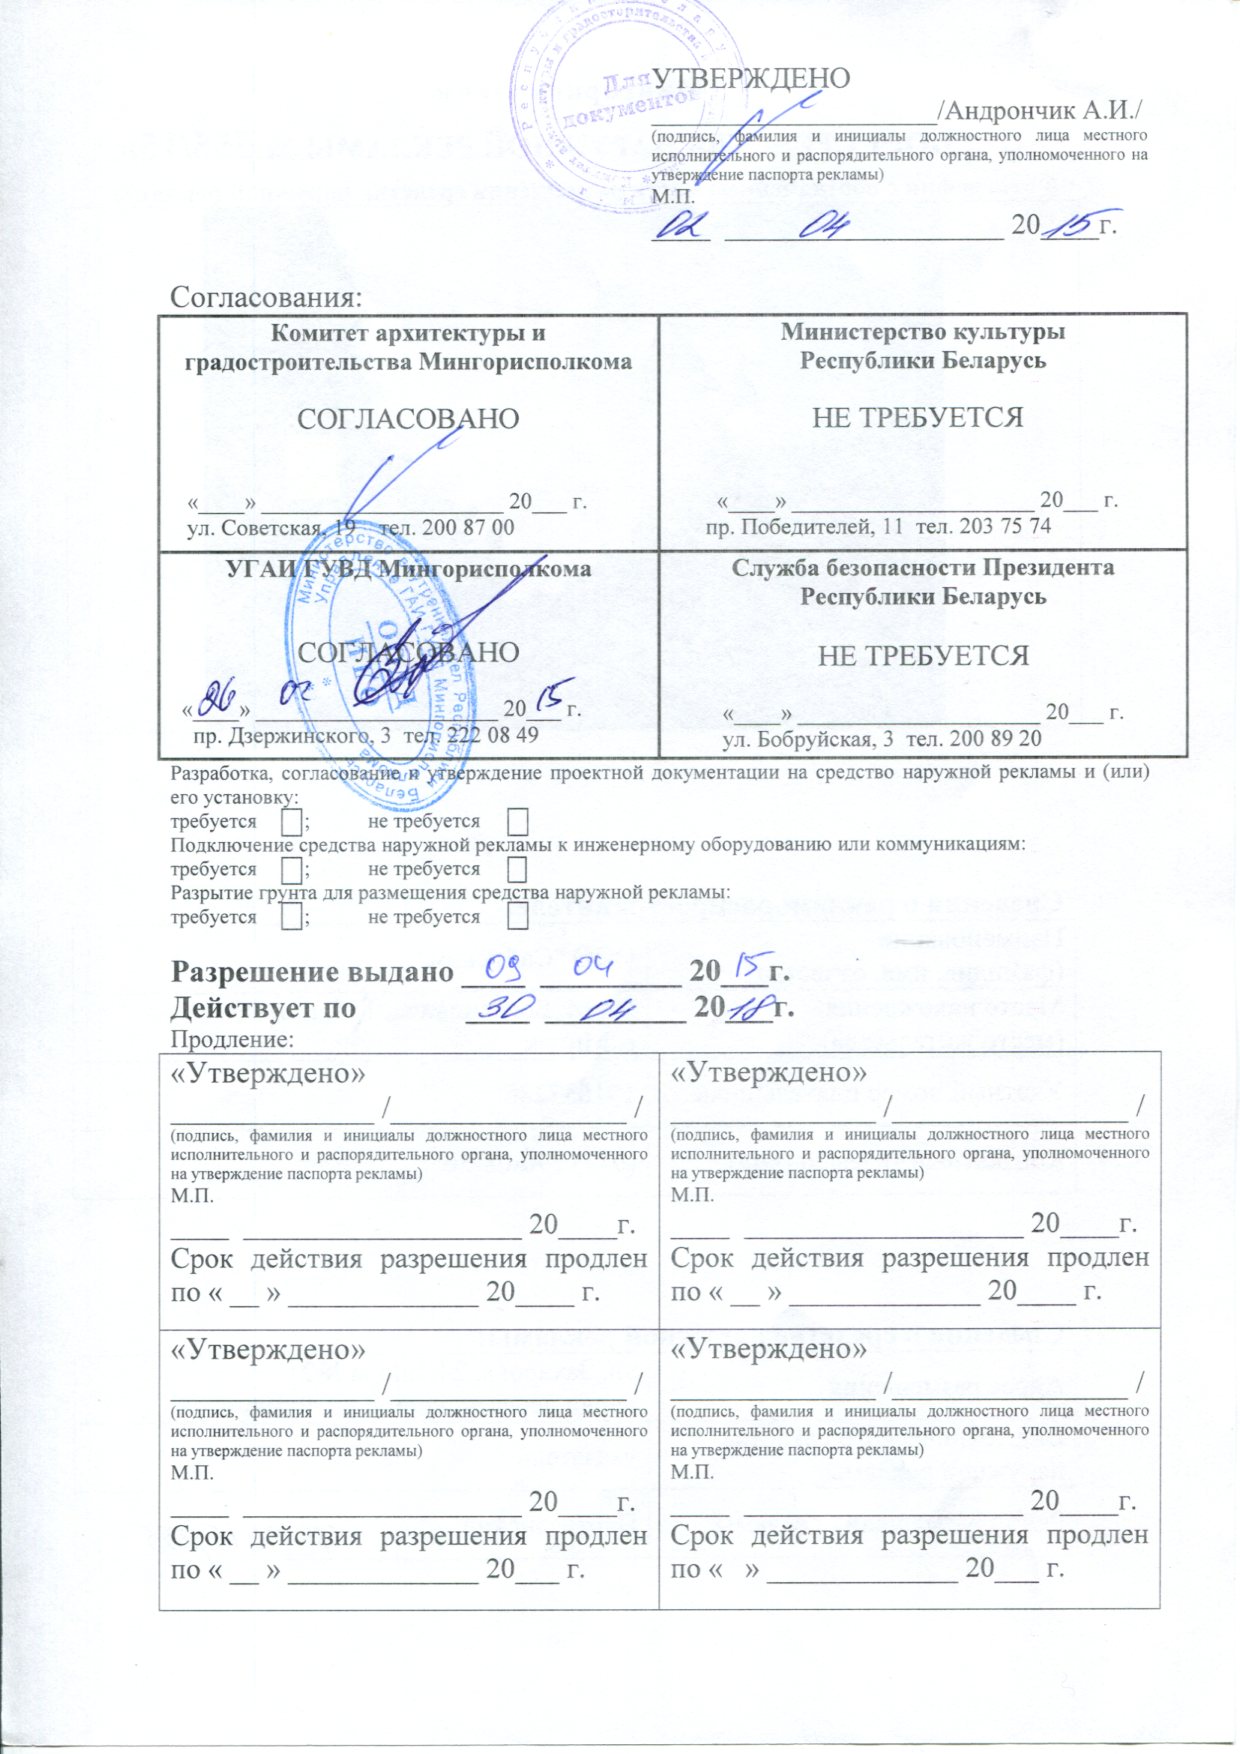 Для
документов
УТВЕРЖДЕНО
____________________/Андрончик А.И./
(подпись, фамилия и инициалы должностного лица местного
исполнительного и распорядительного органа, уполномоченного на
утверждение паспорта рекламы)
М.П.
02 04 2015г.
Согласования:
Комитет архитектуры и
градостроительства Мингорисполкома
СОГЛАСОВАНО
«____» ____________________ 20___ г.
ул. Советская, 19 тел. 200 87 00
Министерство культуры
Республики Беларусь
НЕ ТРЕБУЕТСЯ
«____» ____________________ 20___ г.
пр. Победителей, 11 тел. 203 75 74
УГАИ ГУВД Мингорисполкома
СОГЛАСОВАНО
«26» 02 2015 г.
пр. Дзержинского, 3 тел. 222 08 49
Служба безопасности Президента
Республики Беларусь
НЕ ТРЕБУЕТСЯ
«____» ____________________ 20___ г.
ул. Бобруйская, 3 тел. 200 89 20
Разработка, согласование и утверждение проектной документации на средство наружной рекламы и (или)
его установку:
требуется ; не требуется
Подключение средства наружной рекламы к инженерному оборудованию или коммуникациям:
требуется ; не требуется
Разрытие грунта для размещения средства наружной рекламы:
требуется ; не требуется
Разрешение выдано 09 04 2015г.
Действует по 30 04 2018г.
Продление:
«Утверждено»
______________ /________________ /
(подпись, фамилия и инициалы должностного лица местного
исполнительного и распорядительного органа, уполномоченного
на утверждение паспорта рекламы)
М.П.
____ ___________________ 20____г.
Срок действия разрешения продлен
по « __ » _____________ 20____ г.
«Утверждено»
______________ /________________ /
(подпись, фамилия и инициалы должностного лица местного
исполнительного и распорядительного органа, уполномоченного
на утверждение паспорта рекламы)
М.П.
____ ___________________ 20____г.
Срок действия разрешения продлен
по « __ » _____________ 20____ г.
«Утверждено»
______________ /________________ /
(подпись, фамилия и инициалы должностного лица местного
исполнительного и распорядительного органа, уполномоченного
на утверждение паспорта рекламы)
М.П.
____ ___________________ 20____г.
Срок действия разрешения продлен
по « __ » _____________ 20___ г.
«Утверждено»
______________ /________________ /
(подпись, фамилия и инициалы должностного лица местного
исполнительного и распорядительного органа, уполномоченного
на утверждение паспорта рекламы)
М.П.
____ ___________________ 20____г.
Срок действия разрешения продлен
по « » _____________ 20___ г.